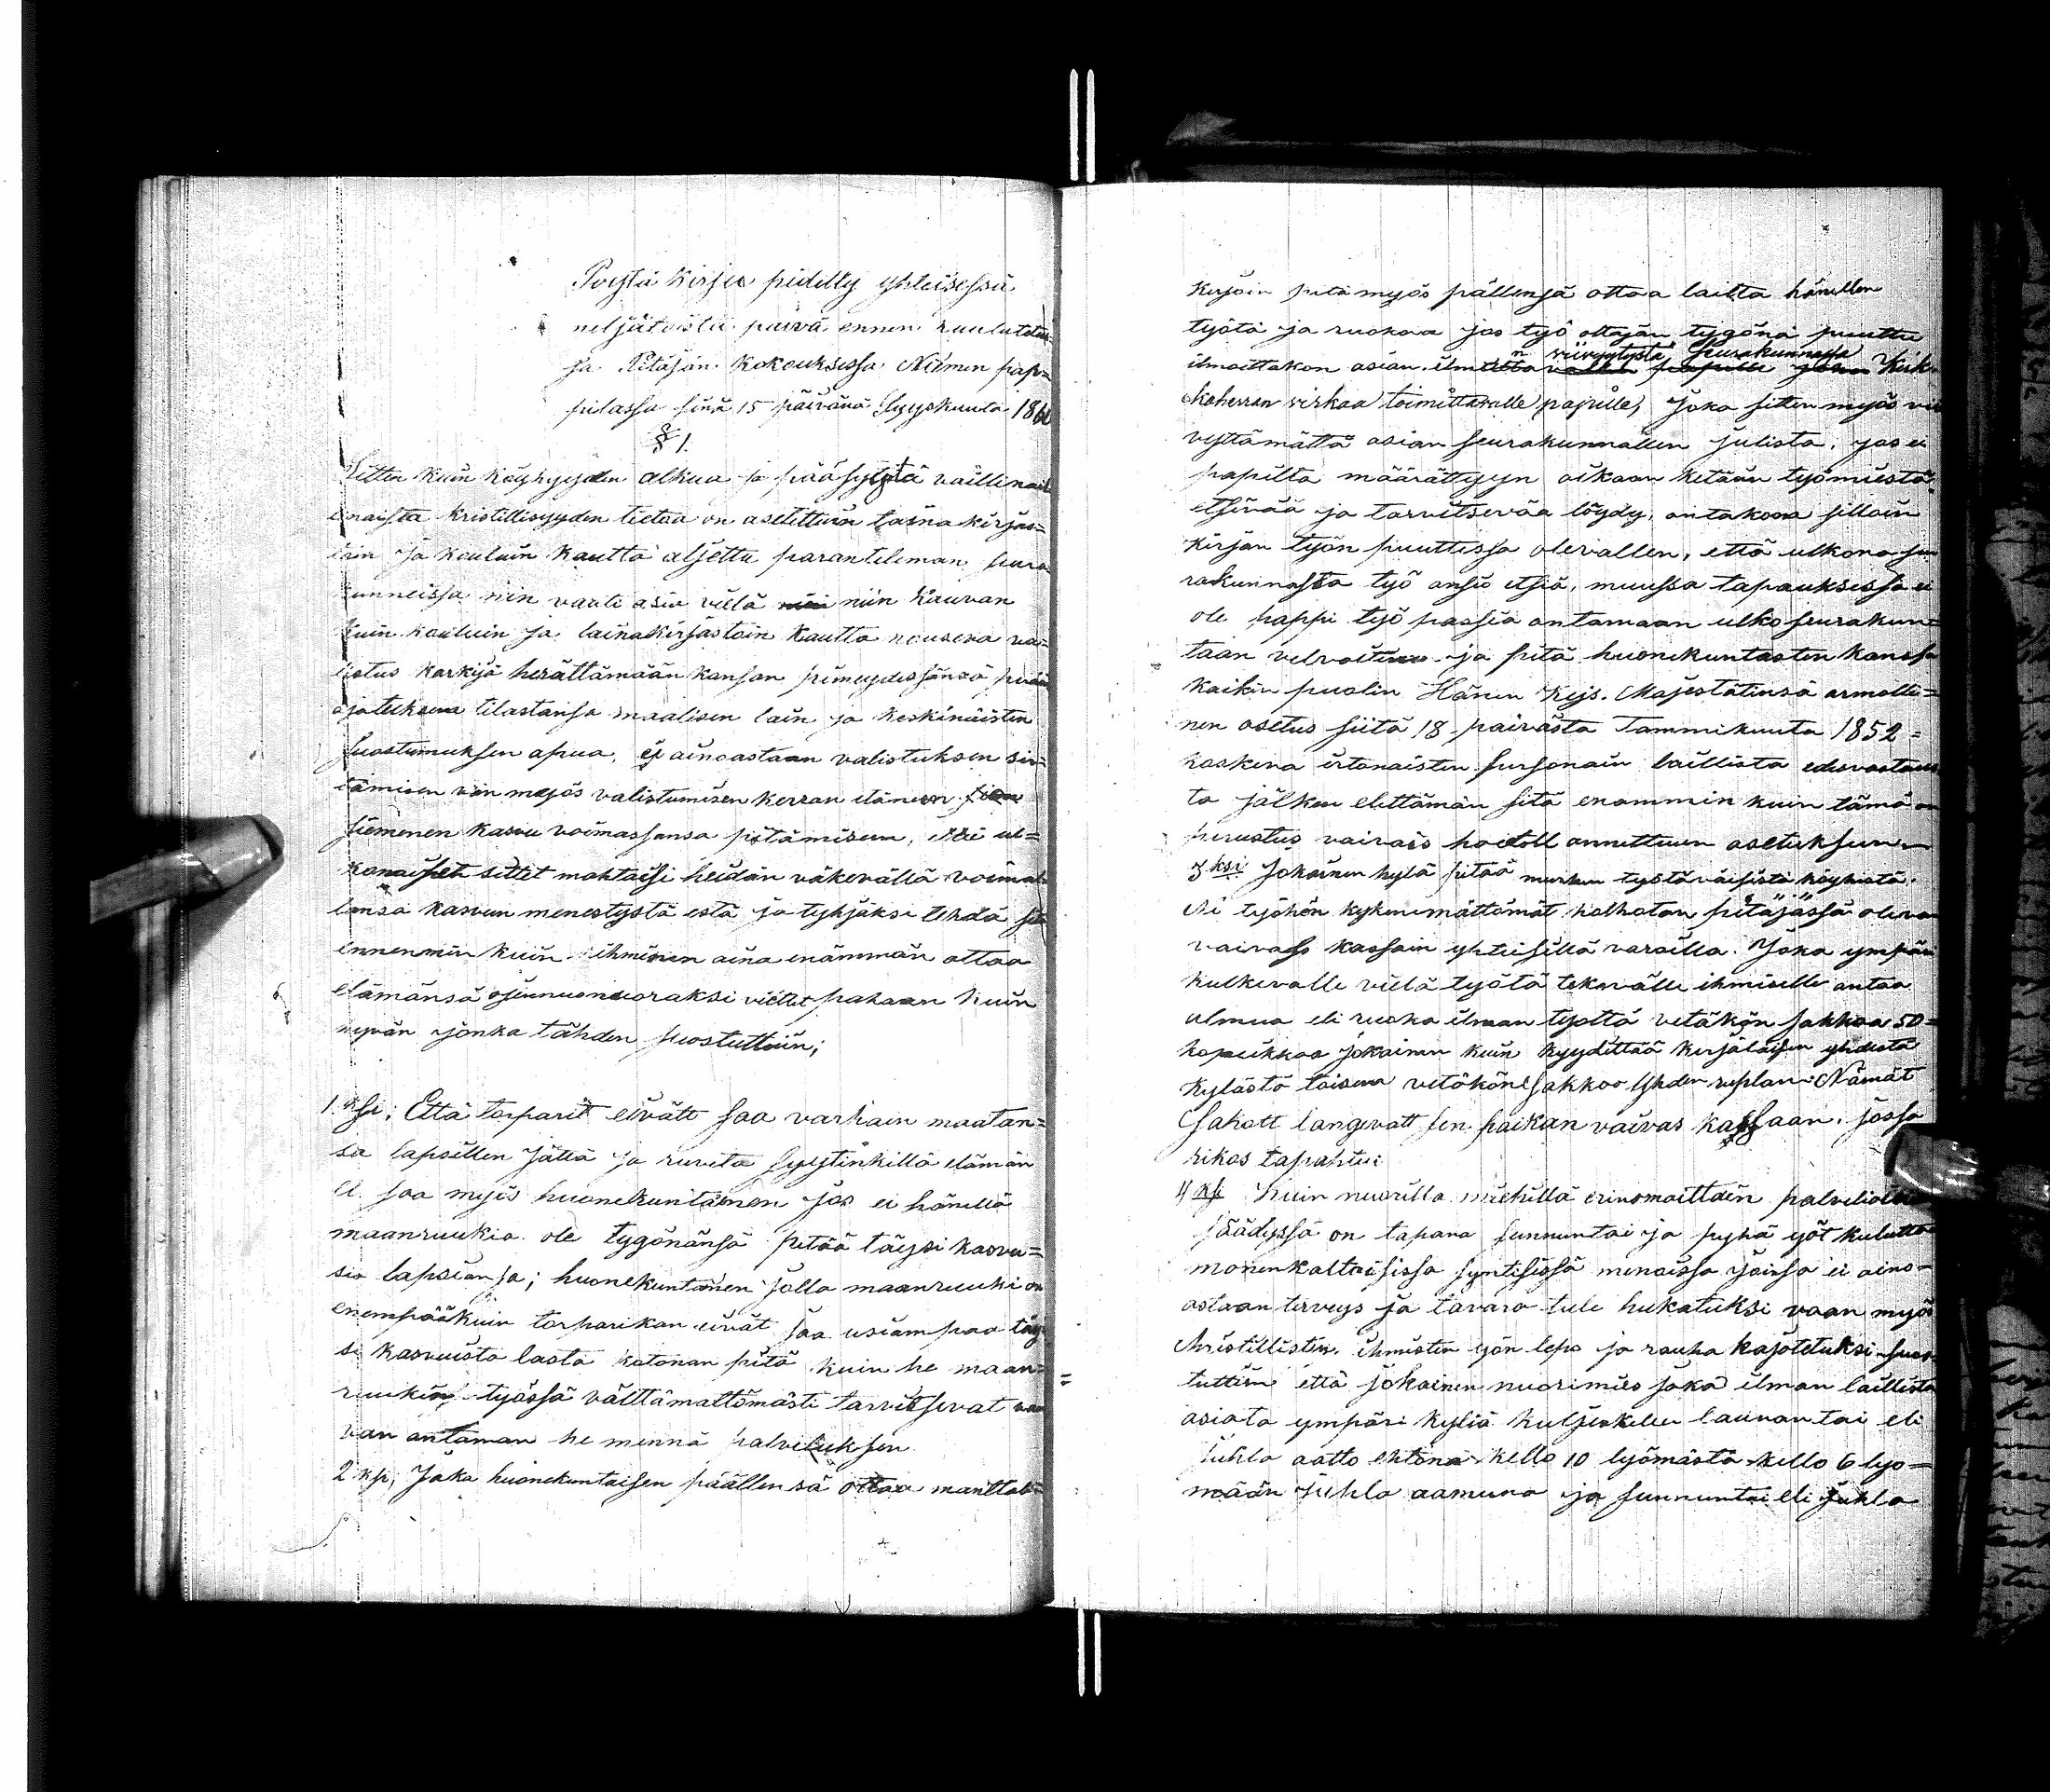 Poytä Kirja pidetty yhteisessä
neljätoista päivä ennen kuulutetu
sa Pitäjän Kokouksessa Niemen pap=
pilassa sinä 15 päivänä Syyskuuta 1860
§ 1.
Sitten kuin köyhyyden alkua ja pääsyystä vaillinai
enaista kristillisyyden tietoa on asetettuin laina kirjas=
toin ja kouluin kautta aljettu paranteleman seura
kunneissa niin vaati asia vielä niin kauvan
kuin kouluin ja lainakirjastoin kautta nouseva va=
listus kerkijä herättämään kansan pimeydessänsä
ajattelkaava tilastansa maalisen lain ja keskinäisten
suostumuksen apua, ej ainoastaan valistuksen sii=
tämisen vän myös valistumisen kerran eläneen
siemenen kasvu voimassansa pitämiseen, ettei ul=
konaiset sittet mahtaisi heidän väkevällä voimal
lansa kasvun menestystä estä ja tyhjäksi tehdä
ennenmin kuin ihminen aina enämmän ottaa
elämänsä ojennusnuoraksi viettet pahaan kuin
hyvän jonka tähden suostuttiin;
1 ksi; Että torparit eivätt saa varhain maatan=
sa lapsillen jättä ja ruveta syystinkillä elämän
ei saa myös huonekuntainen jos ei hänellä
maanruukia ole tygönänsä pitää täysi kasvu=
sia lapsiansa; huonekuntainen jolla maanruuki on
enempää kuin torparikan eivät saa usiampaa täy
si kasvuista lasta kotonan pitä kuin he maan=
ruukin työssä välttämättömästi tarvitsevat
van antaman he mennä palveluksen
2 ksi, Joka huonekuntaisen päällensä ottaa manttali
kirjoin pitä myös pällensä ottaa laitta hänellen
työtä ja ruokaa jos työ ottajan tygönä puuttu
ilmoittakon asian ilman viivytystä Seurakunnassa Kirk
koherran virkaa toimittavalle papille, Joka sitten myös vii
vyttämättä asian seurakunnallen julista, jos ei
papilta määrättyyn aikaan ketään työmiestä
etsivää ja tarvitsevaa löydy, antakoon silloin
kirjan työn puuttessa olevallen, että ulkona seu
rakunnasta työ ansio etsiä, muussa tapauksessa ei
ole pappi työ passia antamaan ulko seurakun=
taan velvoitinen ja pitä huonekuntasten kanssa
kaikin puolin Hänen Keis. Majestätinsä armolli=
nen asetus siitä 18 päivästa Tammikuuta 1852=
koskeva irtonaisten personain laillista edesvastaus
ta jälken elettämän sitä enommin kuin tämä on
perustus vaivais hoitoll annettuun asetukseen
3 ksi Jokainen kylä pitää murhen työtä väisistä köyhistä.
Ni työhön kykenemättömät holhotan pitäjässä oleva
vaivass kassain yhteisillä varoilla. Joka ympäri
kulkevalle vielä työtä tekevälle ihmiselle antaa
almua eli ruoka ilman työttä vetäkön sakkoa 50=
kopeikkaa jokainen kuin kyydittää kerjäläisen yhdestä
kylästä toiseen vetäkön sakkoo Yhden ruplan. Nämät
Sakott langevatt sen paikan vaivas kassaan, jossa
rikos tapahtui
4 ksi Kuin nuorilla miehillä erinomaittain palvelia
säädyssä on tapana sunnuntai ja pyhä yöt kulutta
monenkaltaisissa syntisissä menoissa joissa ei aino=
astaan terveys ja tavara tule hukatuksi vaan myös
Christillisten ihmisten yön lepo ja rauha kajotetuksi suos
tuttiin että jokainen nuorimies joka ilman laillista
asiata ympäri kyliä kuljeskelee lauvantai eli
juhla aatto ehtona kello 10 lyömästä kello 6 lyö=
mään juhla aamuna ja sunnuntai eli juhla